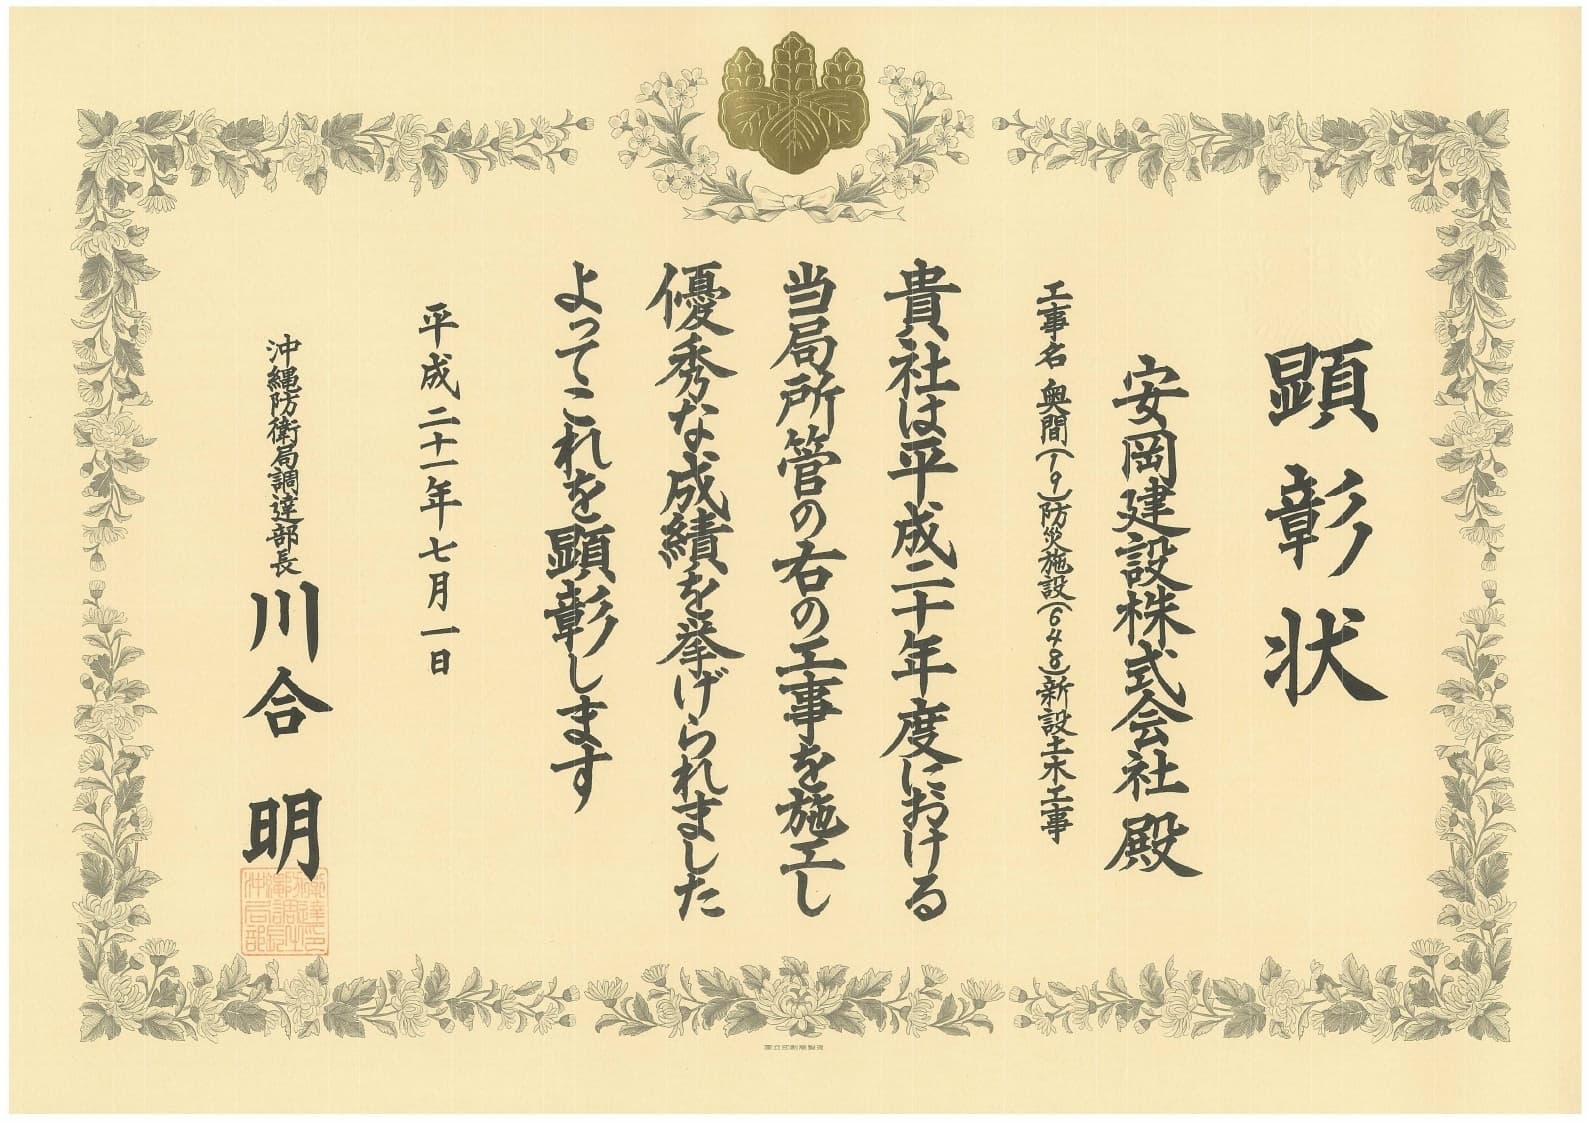 顕彰状
安岡建設株式会社殿
工事名 奥間(19)防災施設(648)新設土木工事
貴社は平成二十年度における
当局所管の右の工事を施工し
優秀な成績を挙げられました
よってこれを顕彰します
平成二十一年七月一日
沖縄防衛局調達部長 川合 明
国立印刷局製造